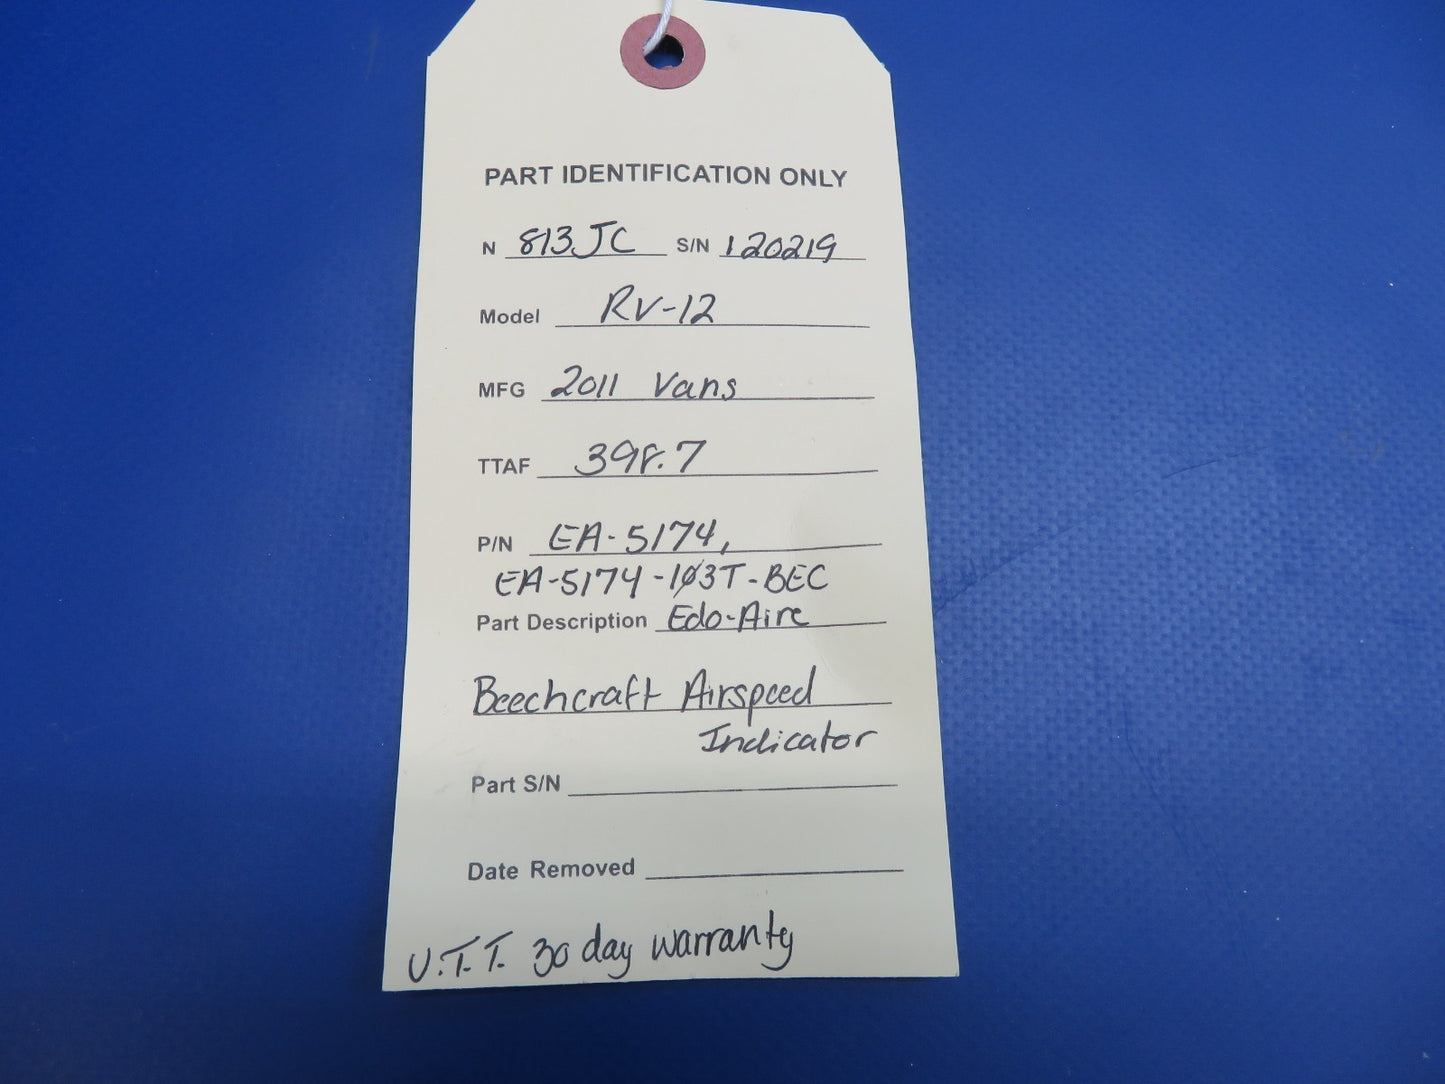 PART IDENTIFICATION ONLY
N 813JC S/N 120219
Model RV-12
MFG 2011 Vans
TTAF 398.7
P/N EA-5174,
EA-5174-103T-BEC
Part Description Edo-Aire
Beechcraft Airspeed
Indicator
Part S/N
Date Removed
U.T.T. 30 day warranty